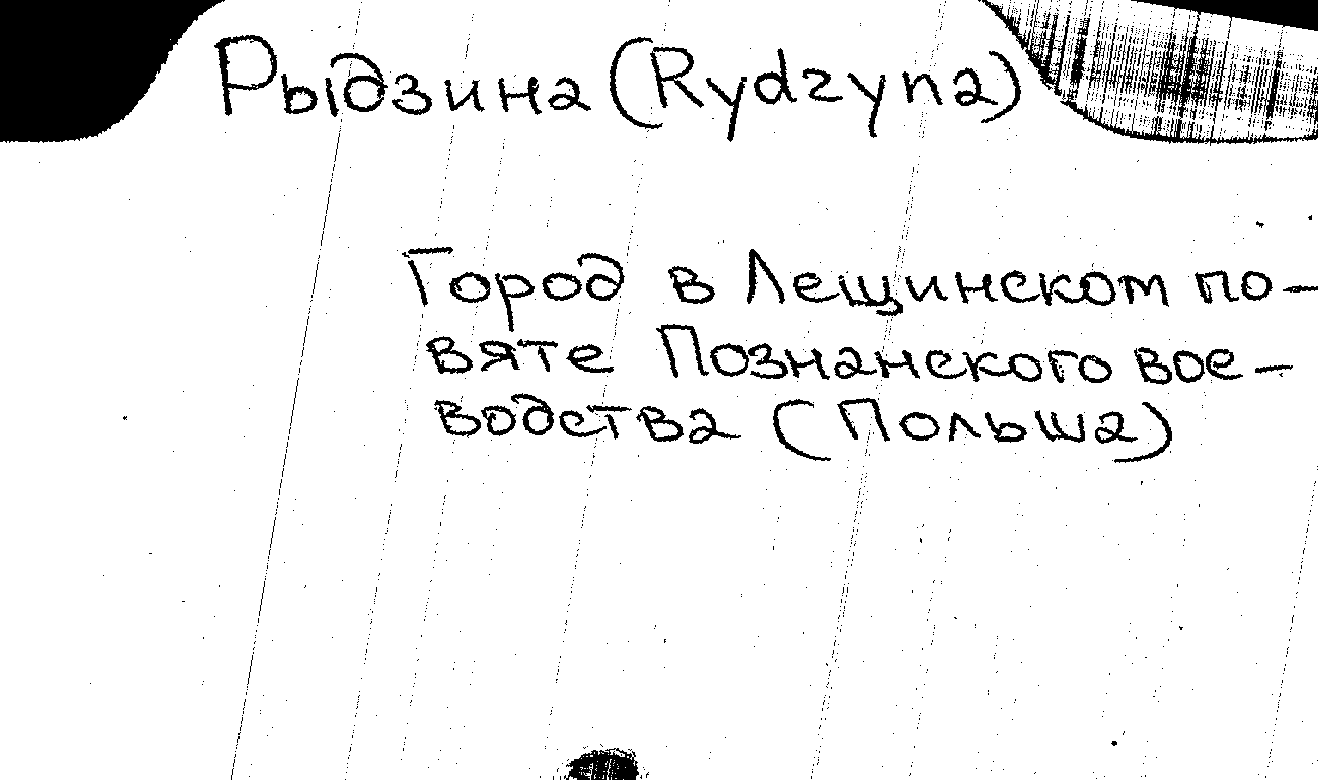 Рыдзина (Rydzyna)
Город в Лещинском по-
вяте Познанского вое-
водства (Польша)